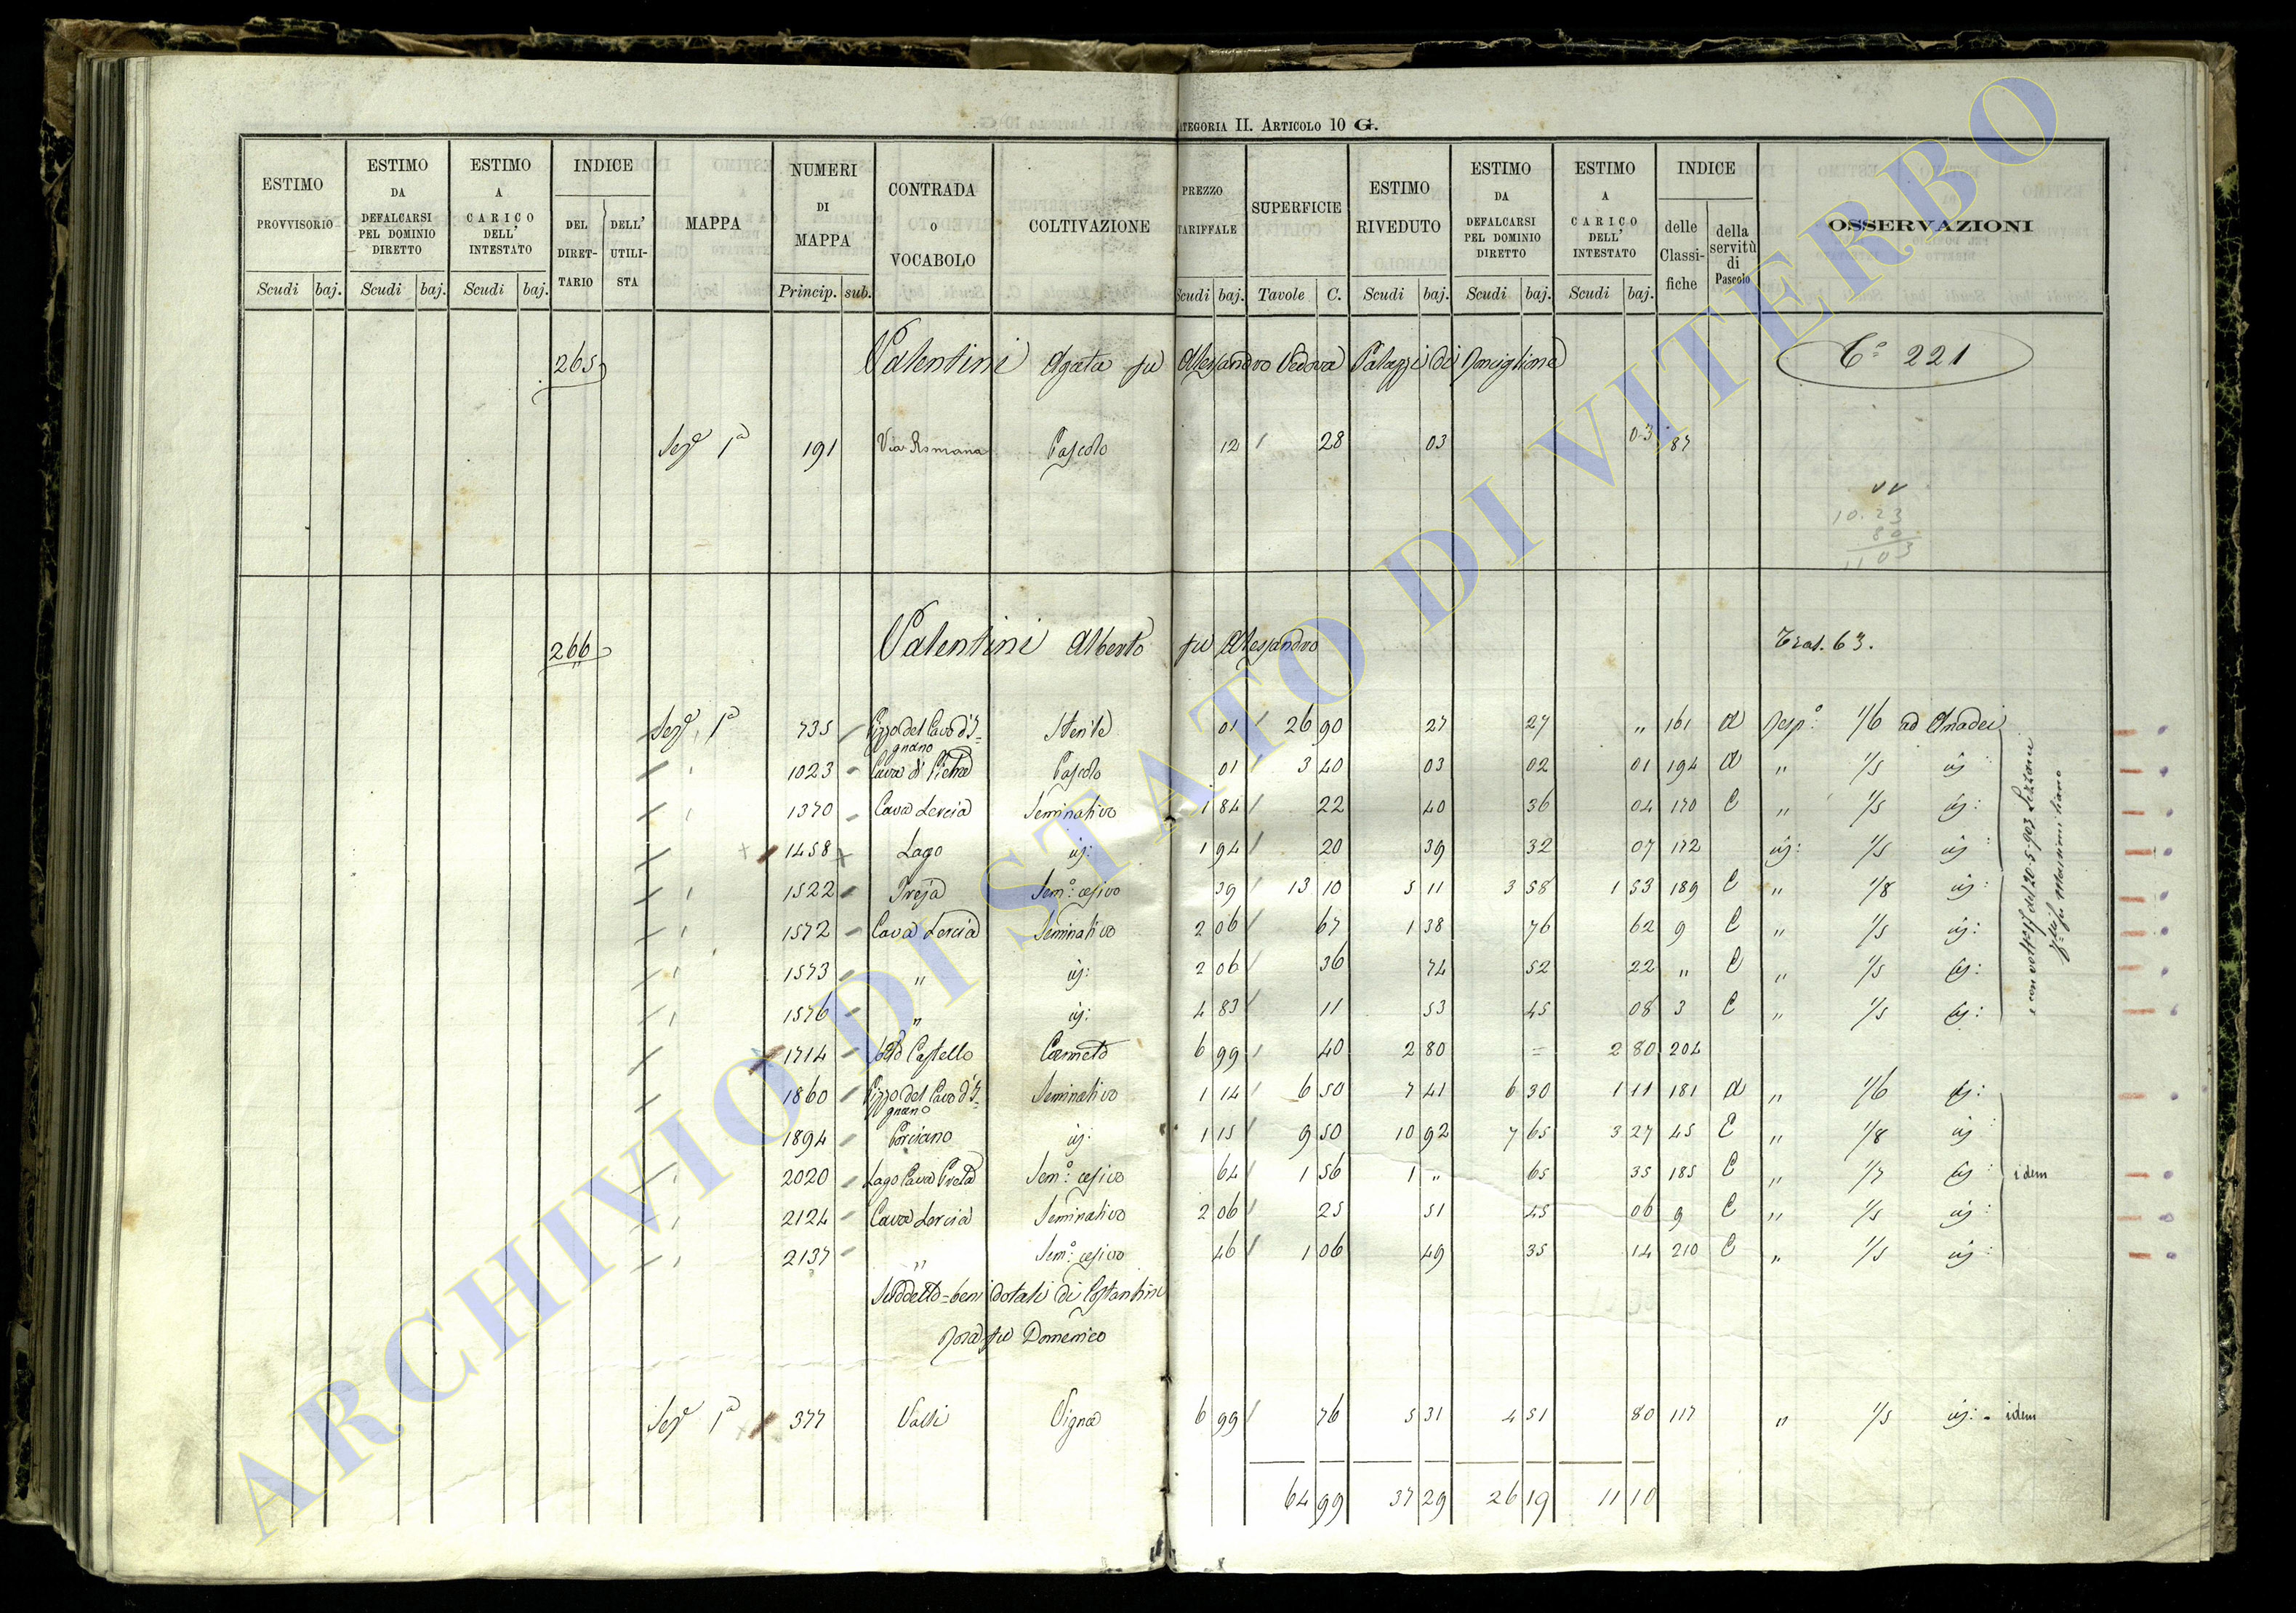 CATEGORIA II. ARTICOLO 10 G.
ESTIMO PROVVISORIO Scudi baj. ESTIMO DA DEFALCARSI PEL DOMINIO DIRETTO Scudi baj. ESTIMO A CARICO DELL' INTESTATO Scudi baj. INDICE DEL DIRET-TARIO DELL' UTILI-STA MAPPA NUMERI DI MAPPA Princip. sub. CONTRADA O VOCABOLO COLTIVAZIONE PREZZO TARIFFALE Scudi baj. SUPERFICIE Tavole C. ESTIMO RIVEDUTO Scudi baj. ESTIMO DA DEFALCARSI PEL DOMINIO DIRETTO Scudi baj. ESTIMO A CARICO DELL' INTESTATO Scudi baj. INDICE delle Classi-fiche della servitù di Pascolo OSSERVAZIONI
265 Valentini Agata fu Alessandro Vedova Palazzi di Ronciglione Cº 221
Sezº 1ª 191 Via Romana Pascolo 12 / 28 03 03 87
10.23
80
11 03
266 Valentini Alberto fu Alessandro Tras. 63.
Sezº 1ª 735 Pizzo del Cavo d'I=gnano Sterile 01 / 26 90 27 27 " 161 A Rispº 1/6 ad Amadei
1023 Cava di Pietra Pascolo 01 / 3 40 03 02 01 194 A " 1/5 iđ
1370 Cava Lercia Seminativo 1 84 / 22 40 36 04 170 C " 1/5 iđ:
1458 Lago iđ: 1 94 / 20 39 32 07 172 iđ: 1/5 iđ
1522 Treja Semº: cesivo 39 / 13 10 5 11 3 58 1 53 189 C " 1/8 iđ:
1572 Cava Lercia Seminativo 2 06 / 67 1 38 76 62 9 C " 1/5 iđ:
1573 " iđ: 2 06 / 36 74 52 22 " C " 1/5 iđ:
1576 " iđ: 4 83 / 11 53 45 08 3 C " 1/5 iđ:
1714 Sotto Castello Canneto 6 99 / 40 2 80 = 2 80 204
1860 Pizzo del Cavo d'I=gnano Seminativo 1 14 / 6 50 7 41 6 30 1 11 181 A " 1/6 iđ:
1894 Porciano iđ: 1 15 / 9 50 10 92 7 65 3 27 45 C " 1/8 iđ
2020 Lago Cava Preta Semº: cesivo 64 / 1 56 1 " 65 35 185 C " 1/7 iđ idem
2124 Cava Lercia Seminativo 2 06 / 25 51 45 06 9 C " 1/5 iđ:
2137 " Semº: cesivo 46 / 1 06 49 35 14 210 C " 1/5 iđ:
Suddetto = beni dotali di Costantini
Rosa fu Domenico
Sezº 1ª 377 Valli Vigna 6 99 / 76 5 31 4 51 80 117 " 1/5 iđ: - idem
64 99 37 29 26 19 11 10
ARCHIVIO DI STATO DI VITERBO